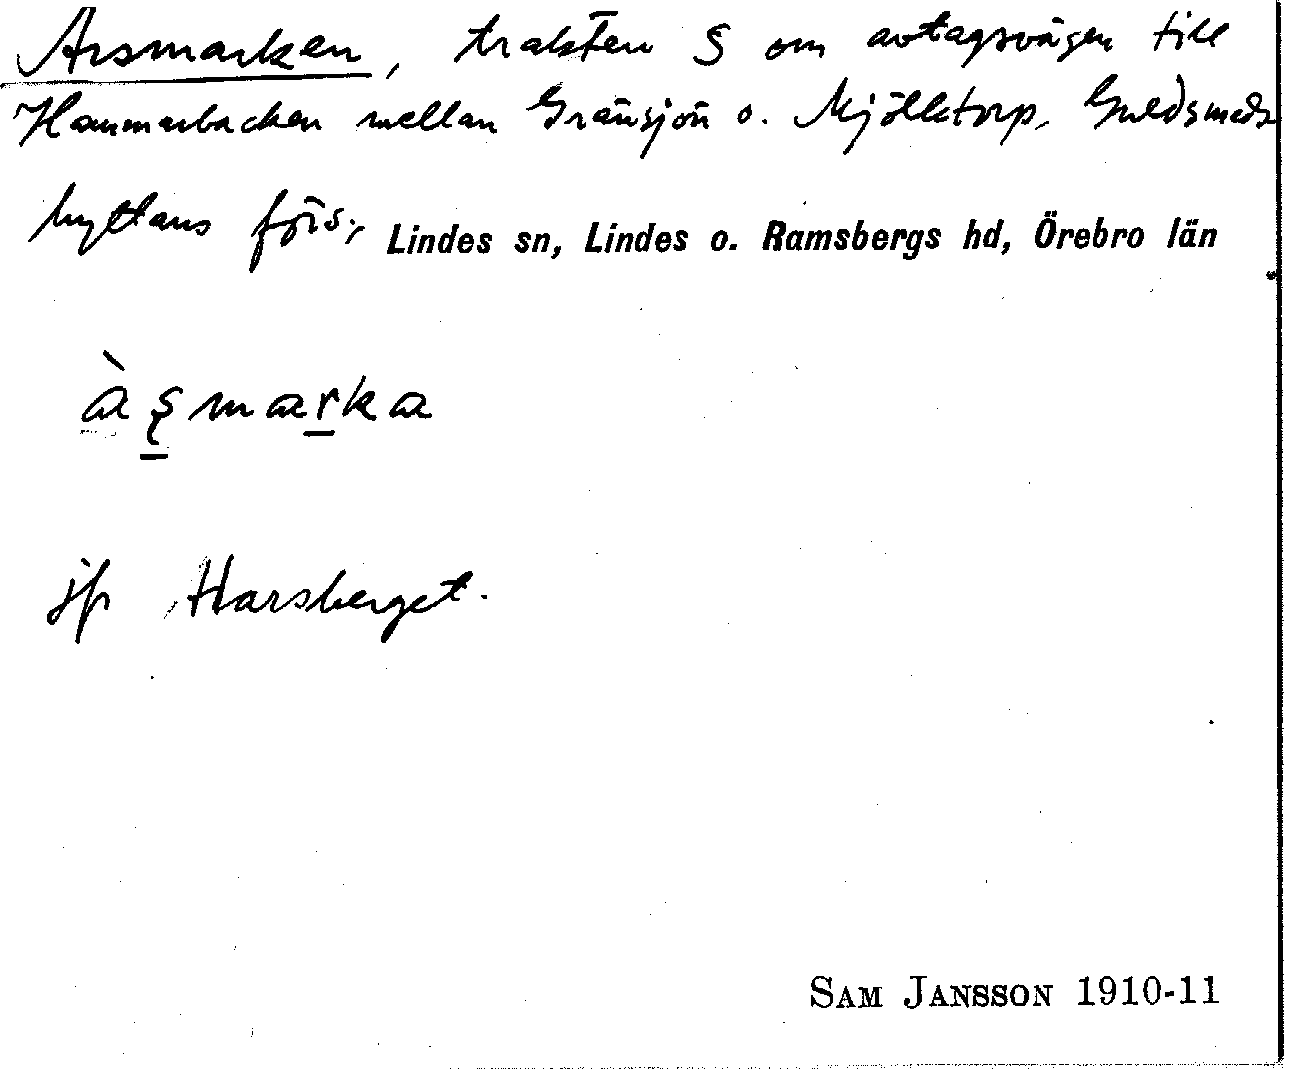 Arsmarken, trakten S om avtagsvägen till
Hammarbacken mellan Gränsjön o. Mjölktorp, Guldsmeds
hyttans förs., Lindes sn, Lindes o. Ramsbergs hd, Örebro län
àşmarka
jfr Harsberget.
SAM JANSSON 1910-11